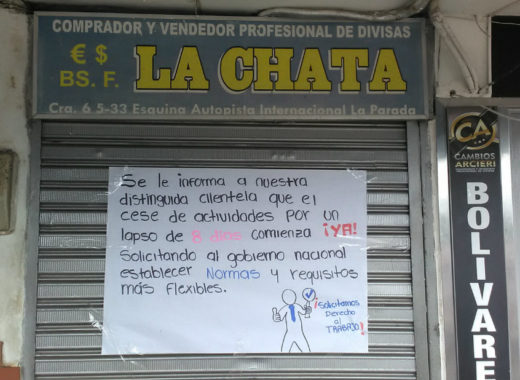 COMPRADOR Y VENDEDOR PROFESIONAL DE DIVISAS
€ $
BS. F.
LA CHATA
Cra. 6 5-33 Esquina Autopista Internacional La Parada
Se le informa a nuestra
distinguida clientela que el
cese de actividades por un
lapso de 8 dias comienza ¡YA!
Solicitando al gobierno nacional
establecer Normas y requisitos
más flexibles.
¡Solicitamos
Derecho
al
TRABAJO!
CA
CAMBIOS
ARCIERI
BOLIVARE